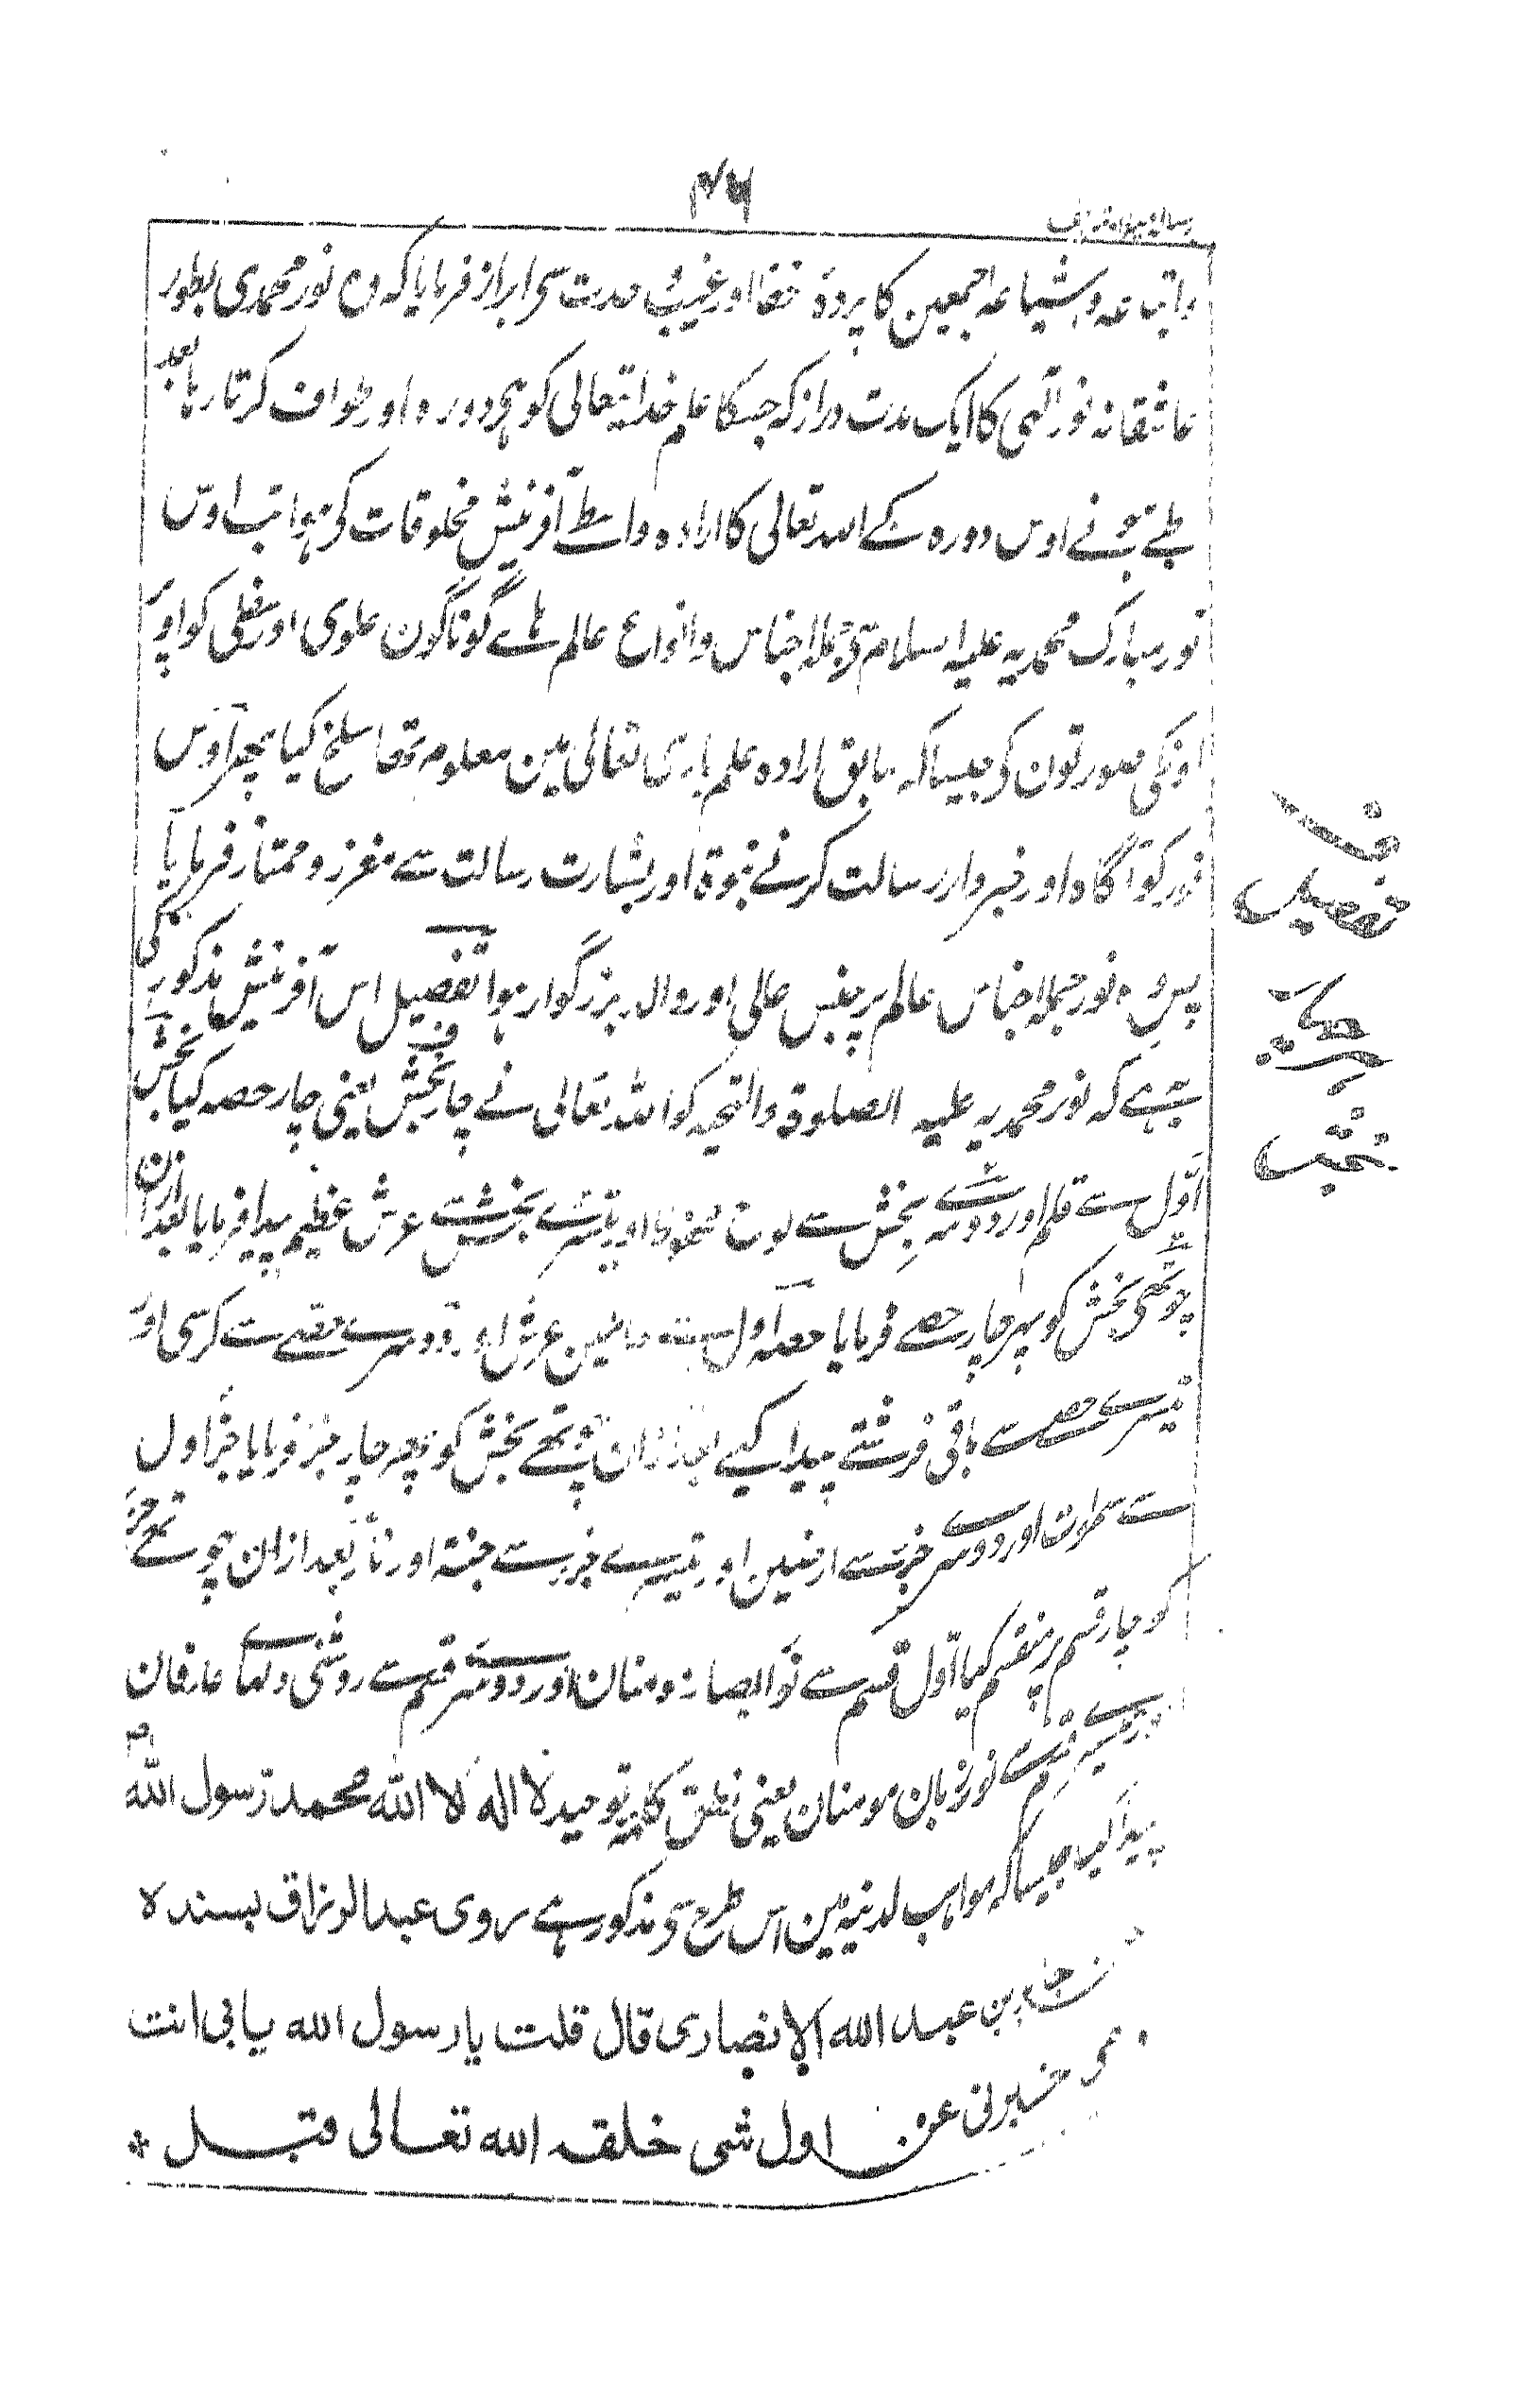 ۴۶
واتباعہ واشیاعہ اجمعین کا پردۂ خفا اور غیب سی ابراز فرمایا کہ وہ نور محمدی بطور
عاشقانہ نور آلٰہی کا ایک مدت دراز کہ جسکا علم خدایتعالی کو ہی دورہ اور طواف کرتا رہا بعد
طے ہونے اوس دورہ کے اللہ تعالی کا ارادہ واسطے آفرنیش مخلوقات کی ہوا تب اوس
نور مبارک محمدیہ علیہ السلام سی جملہ اجناس وانواع عالم ہاے گوناگون علوی اور سفلی کو اور
اونکی صورتون کو جیساکہ سابق ارادہ علم باری تعالی مین معلوم تھا سلخ کیا پھر اوس
نور کو آگاہ اور خبردار رسالت کرنے نبوۃ اور بشارت رسالت سے معزز و ممتاز فرمایا
پس وہ نور جملہ اجناس عالم پر جنس عالی اور والد بزرگوار ہوا تفصیل اس آفرنیش مذکور کی
یہ ہے کہ نور محمدیہ علیہ الصلوۃ والتحیہ کو اللہ تعالی نے چار بخش یعنی چار حصہ کیا بخش
اوّل سے قلم اور دوسرے بخش سے لوح محفوظ اور تیسرے بخش سے عرش عظیم پیدا فرمایا بعد ازان
چوتھی بخش کو پھر چار حصے فرمایا حصہ اول سے حاملین عرش اور دوسرے حصے سے کرسی اور
تیسرے حصے سے باقی فرشتے پیدا کیے بعد ازان چوتھے بخش کو پھر چار جز فرمایا جز اول
سے سموات اور دوسرے جز سے ارضین اور تیسرے جز سے جنۃ اور نار بعد ازان چوتھے جز
کو چار قسم پر منقسم کیا اوّل قسم سے نور ابصار مومنان اور دوسرے قسم سے روشنی دلہاے عارفان
اور تیسرے قسم سے نور زبان مومنان یعنی نطق کلمہ توحید لا الہ الا اللہ محمد رسول اللہ
پیدا کیا جیساکہ مواہب لدنیہ مین اس طرح سی مذکور ہے روی عبد الرزاق بسندہ
جابر بن عبد اللہ الانصاری قال قلت یا رسول اللہ بابی انت
خبرنی عن اول شی خلقہ اللہ تعالی قبل *
تفصیل